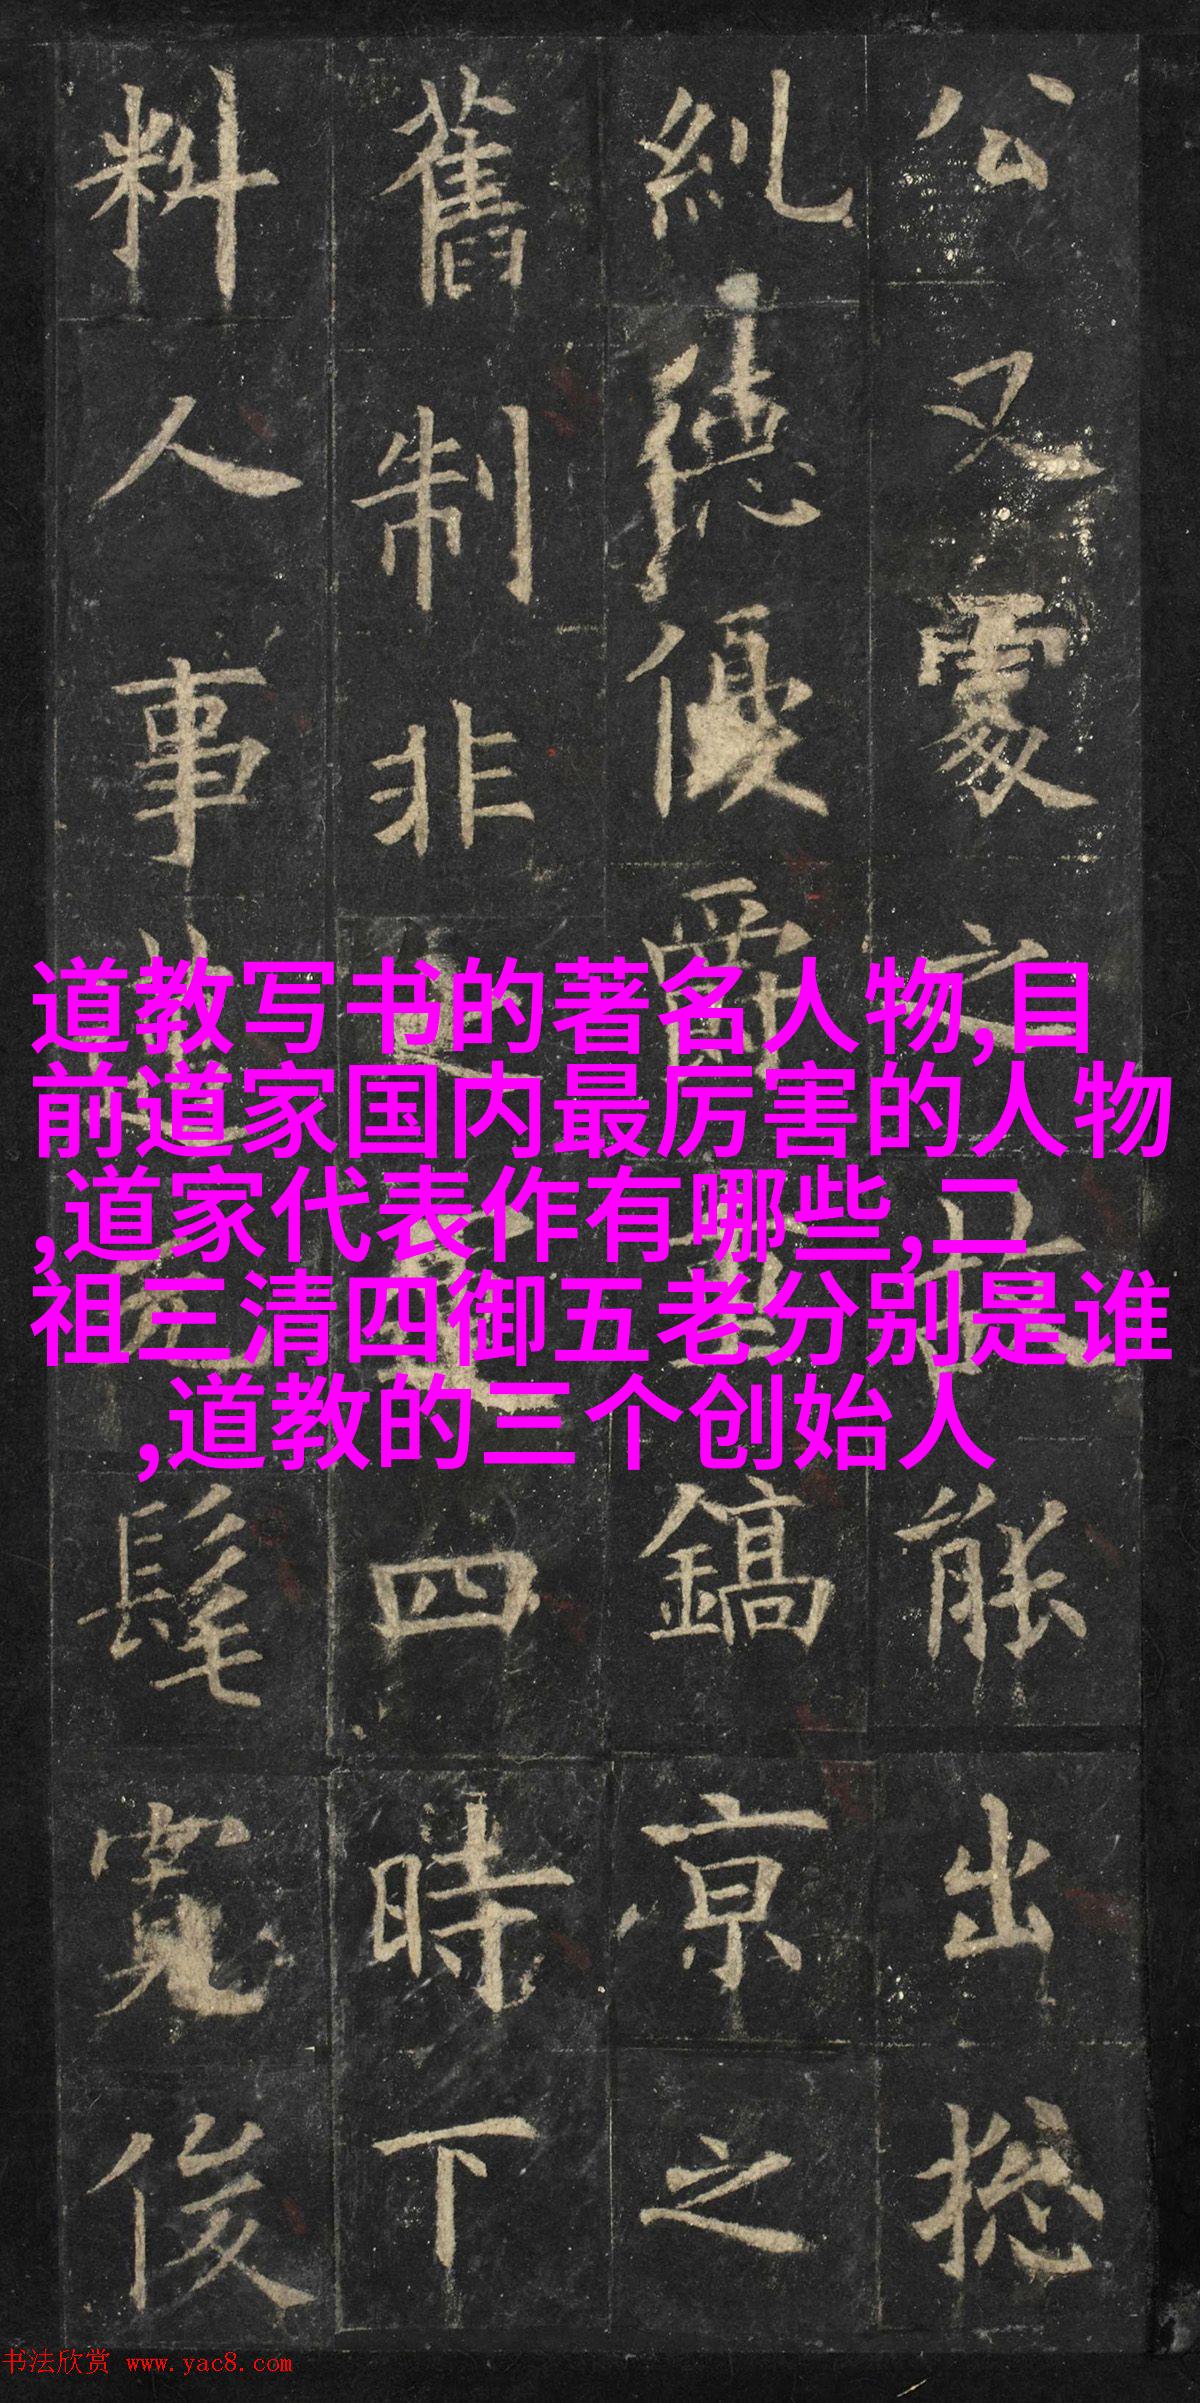 公又之能出揔
糺德優爵鎬京之
舊制非四時下
料人事髦俊
道教写书的著名人物,目
前道家国内最厉害的人物
,道家代表作有哪些,二
祖三清四御五老分别是谁
,道教的三个创始人
书法欣赏 www.yac8.com